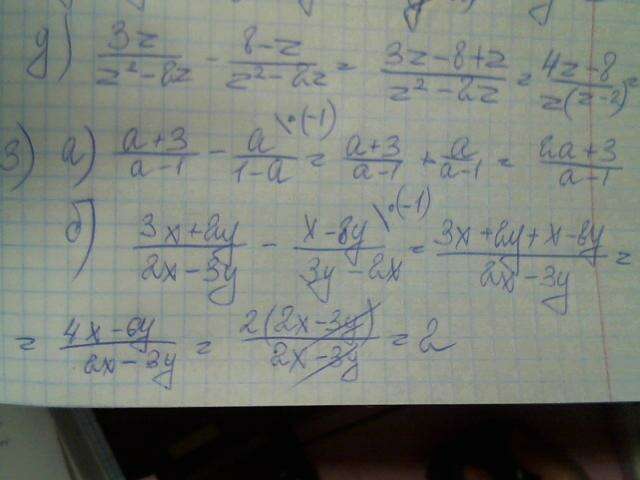 д) 3z/(z²-2z) - (8-z)/(z²-2z) = (3z-8+z)/(z²-2z) = (4z-8)/(z(z-2)) =
3) а) (a+3)/(a-1) - a/(1-a) \·(-1) = (a+3)/(a-1) + a/(a-1) = (2a+3)/(a-1)
б) (3x+2y)/(2x-3y) - (x-8y)/(3y-2x) \·(-1) = (3x+2y+x-8y)/(2x-3y) =
= (4x-6y)/(2x-3y) = 2(2x-3y)/(2x-3y) = 2